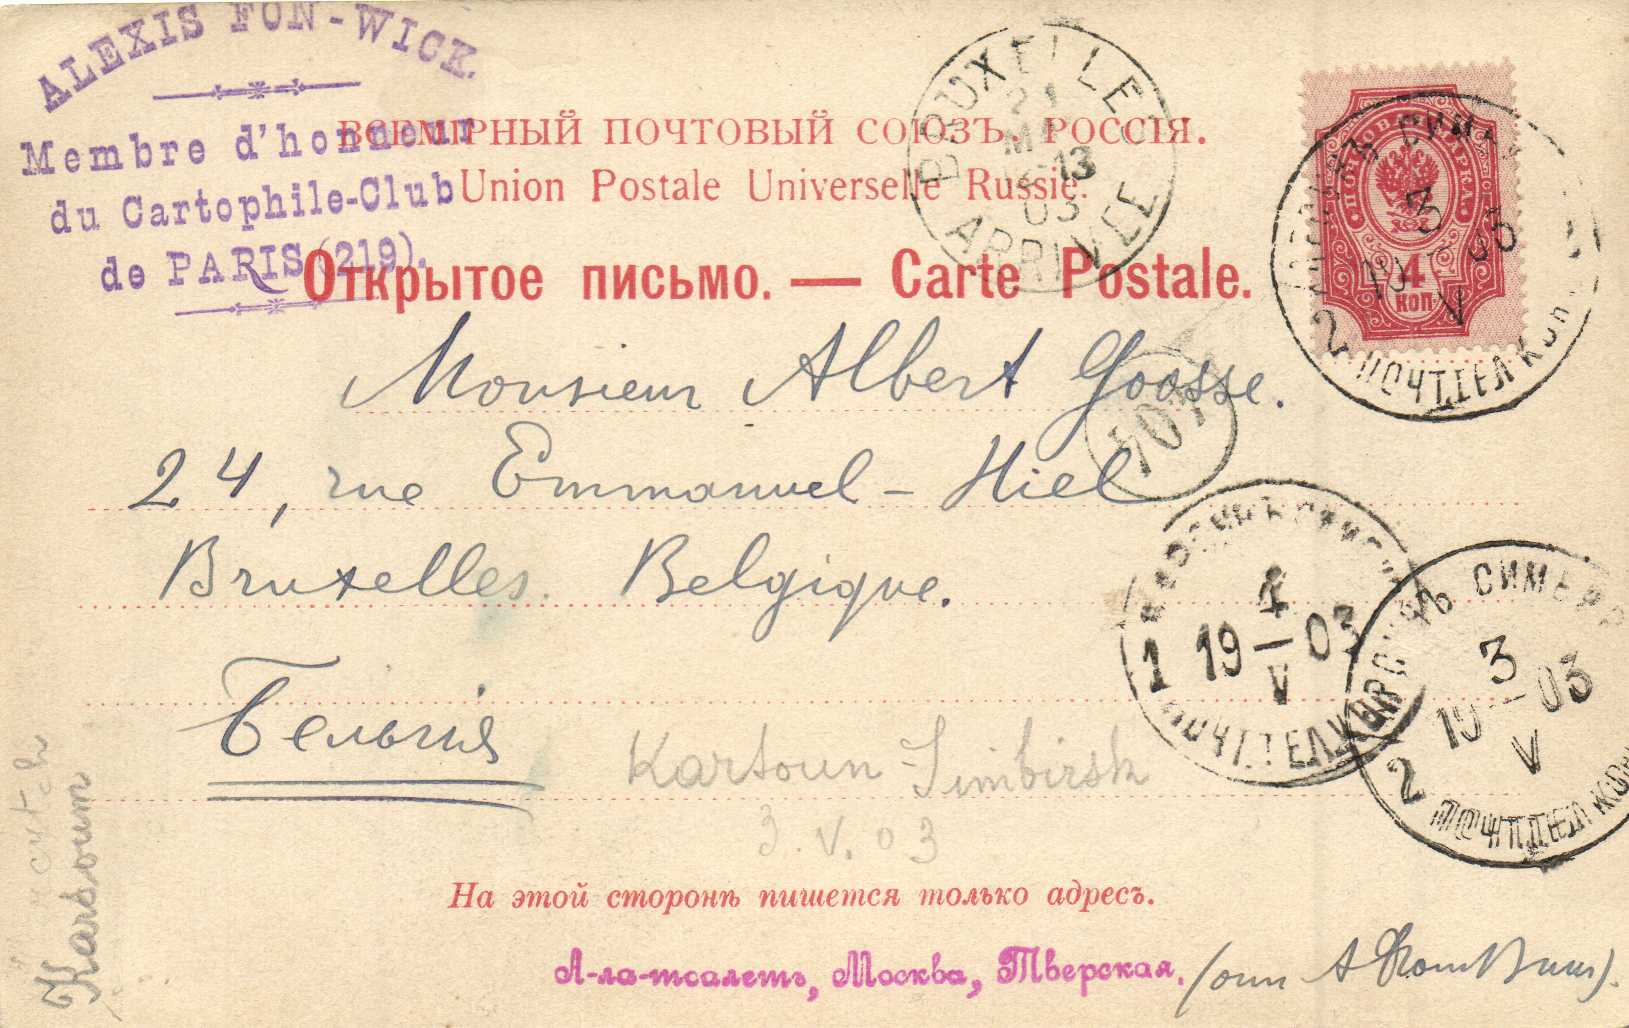 ALEXIS FON-WICK.
Membre d'honneur
du Cartophile-Club
de PARIS (219).
ВСЕМІРНЫЙ ПОЧТОВЫЙ СОЮЗЪ. РОССІЯ.
Union Postale Universelle Russie.
Открытое письмо. — Carte Postale.
BRUXELLE
21
13
03
ARRIVEE
ПОЧТОВАЯ МАРКА
4
КОП
3
19 03
V
2
Monsieur Albert Goosse.
24, rue Emmanuel-Hiel
Bruxelles. Belgique.
Бельгія
404
4
1 19—03
V
СИМБИР
3
19—03
V
2
Karsoun-Simbirsk
3.V.03
Karsoum
На этой сторонѣ пишется только адресъ.
А-ла-тоалетъ, Москва, Тверская.